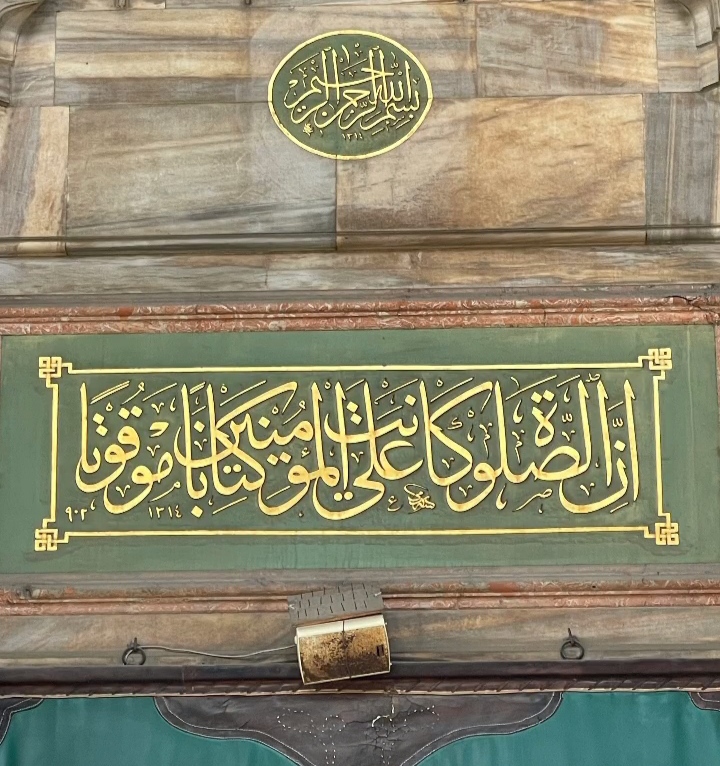 بسم الله الرحمن الرحيم
١٣١٤
إن الصلوة كانت على المؤمنين كتابا موقوتا
١٣١٤